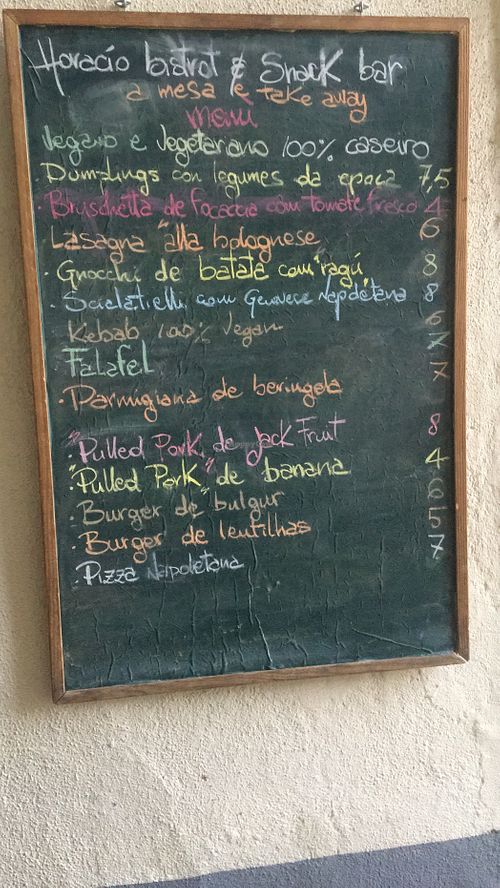 Horacio bistrot & Snack bar
a mesa e take away
menu
Vegano e Vegetarano 100% caseiro
· Dumplings con legumes da epoca 7,5
· Bruschetta de focaccia com tomate fresco 4
· Lasagna "alla bolognese 6
· Gnocchi de batata com "ragú" 8
· Scialatielli com Genovese Napoletana 8
· Kebab 100% Vegan 6
· Falafel 7
· Parmigiana de beringela 7
· "Pulled Pork" de Jack Fruit 8
· "Pulled Pork" de banana 4
· Burger de bulgur 6
· Burger de lentilhas 5
· Pizza Napoletana 7